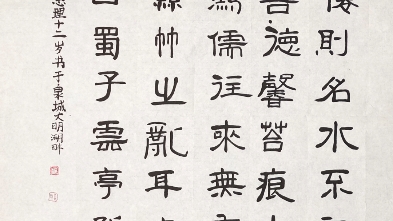 則名水不
吾德馨苔痕上
鴻儒往來無
絲竹之亂耳
西蜀子雲亭
理十二岁书于泉城大明湖畔